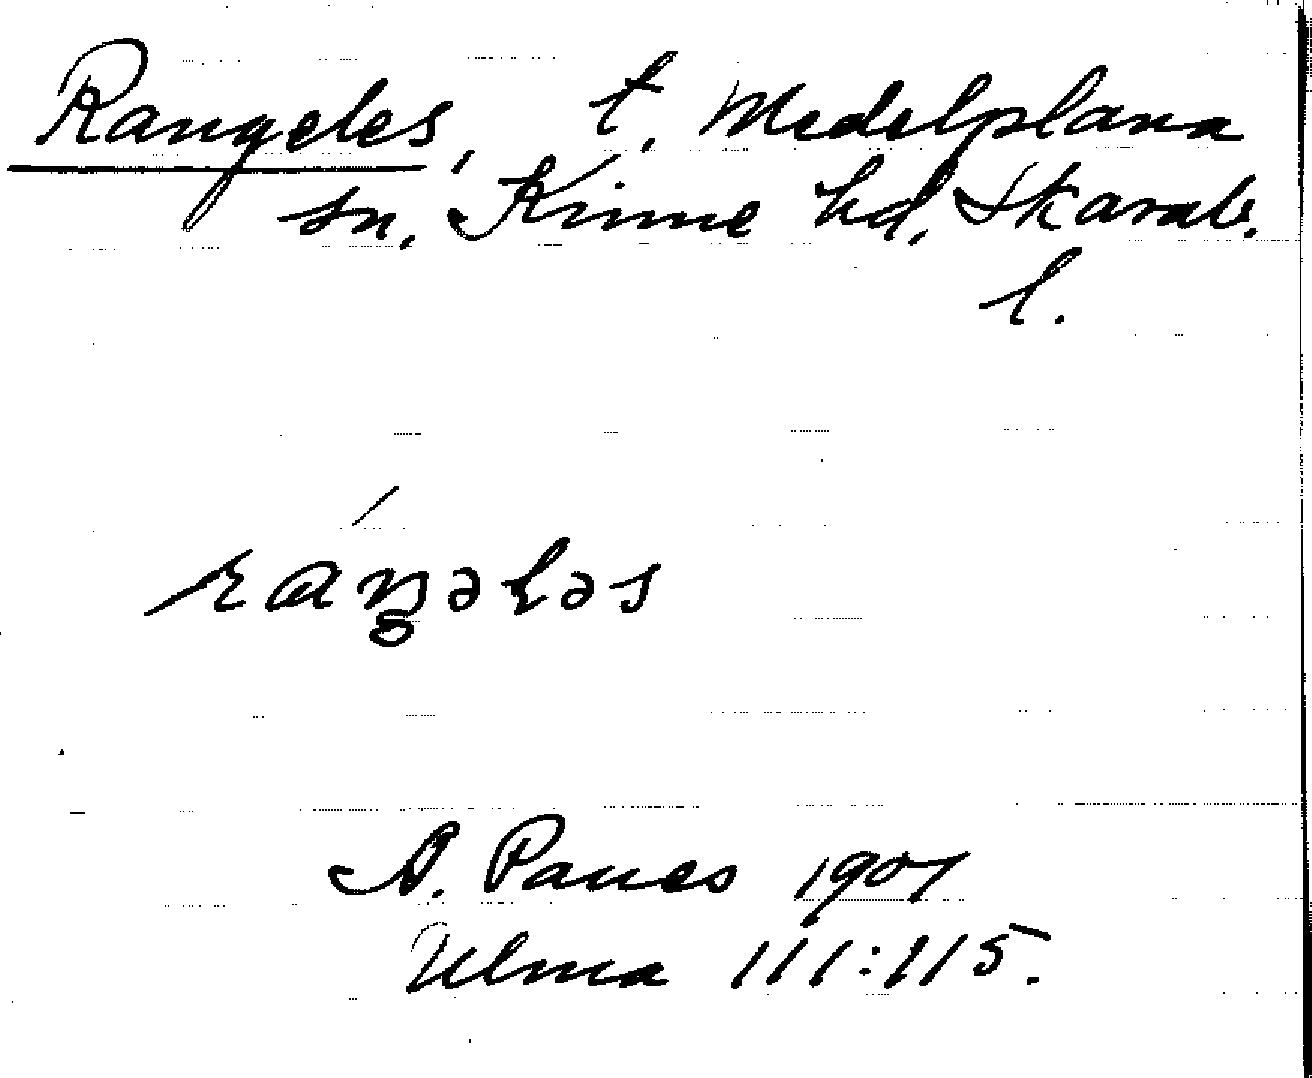 Rangeles, t, Medelplana
sn, Kinne hd, Skarab.
l.
ráŋələs
A. Paues 1901
Ulma 111:115.